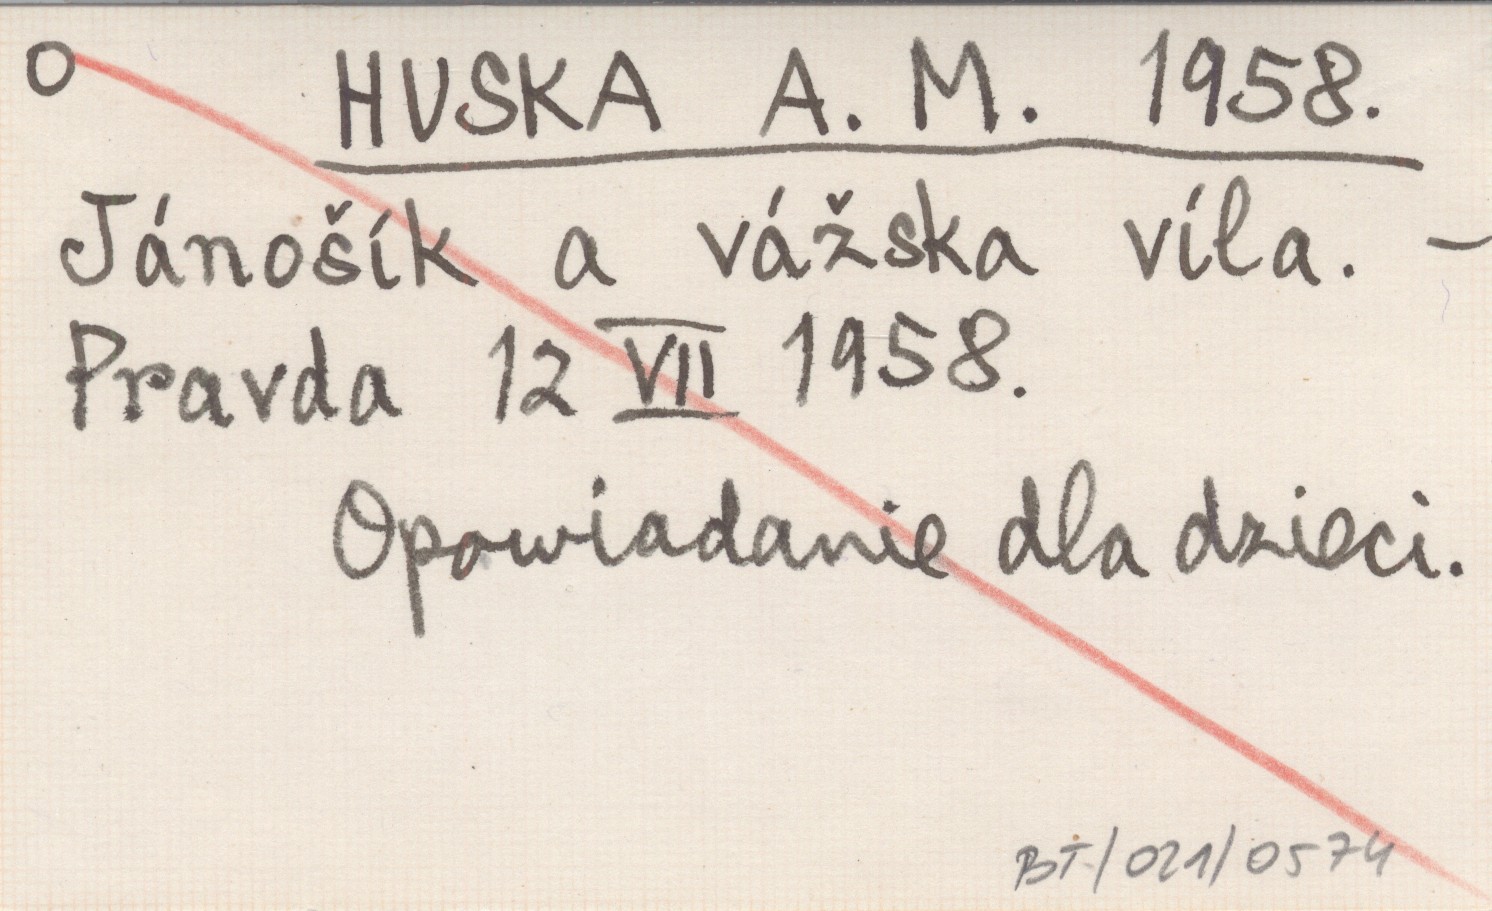 O HUSKA A. M. 1958.
Jánošík a vážska víla. –
Pravda 12 VII 1958.
Opowiadanie dla dzieci.
BT/021/0574